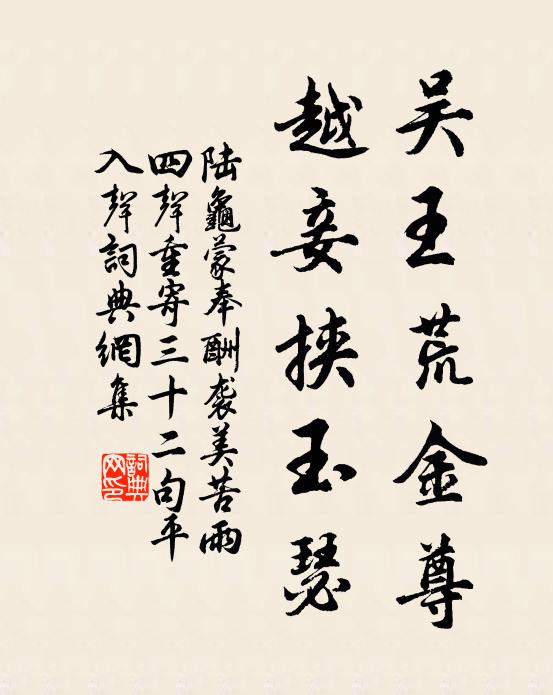 吴王荒金尊
越妾挟玉瑟
陆龜蒙奉酬袭美苦雨
四聲重寄三十二句平
入聲詞典網集
詞典网印